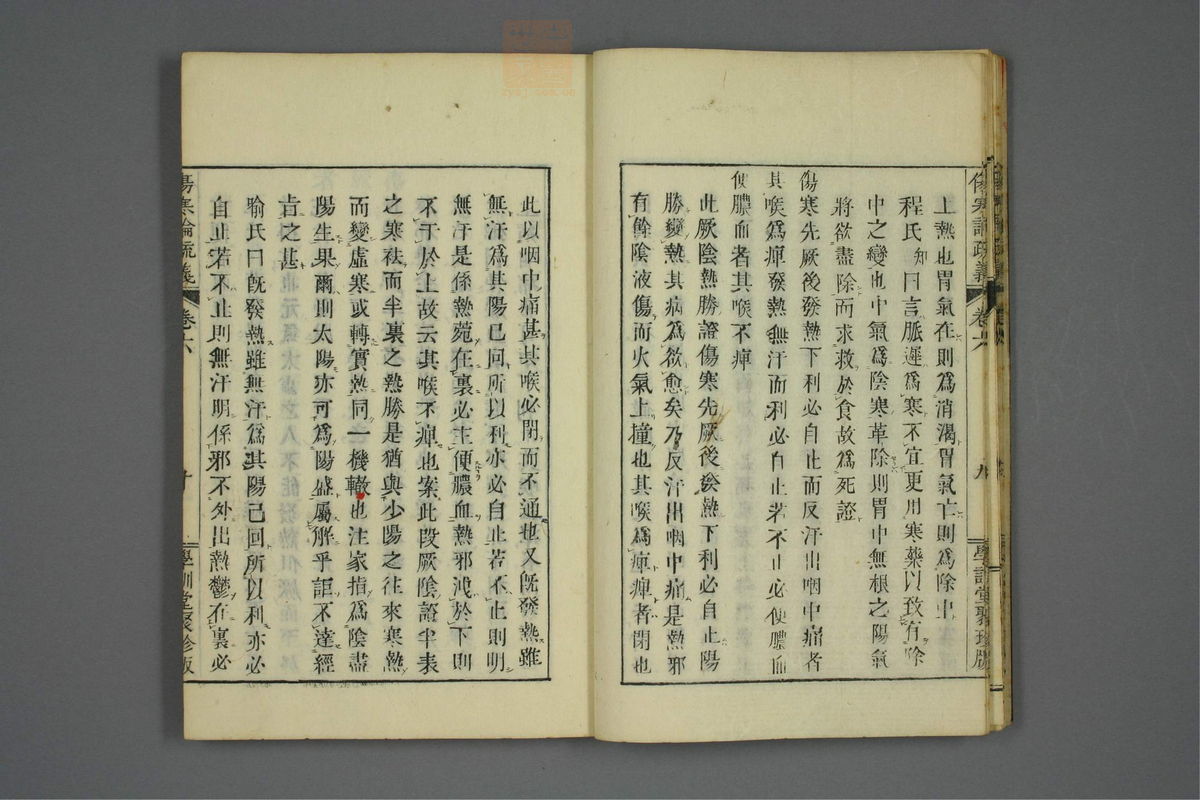 上熱也胃氣在則爲消渴胃氣亡則爲除中
程氏知曰言脈遲爲寒不宜更用寒藥以致有除
中之變也中氣爲陰寒革除則胃中無根之陽氣
將欲盡除而求救於食故爲死證
傷寒先厥後發熱下利必自止而反汗出咽中痛者
其喉爲痺發熱無汗而利必自止若不止必便膿血
便膿血者其喉不痺
此厥陰熱勝證傷寒先厥後發熱下利必自止陽
勝變熱其病爲欲愈矣乃反汗出咽中痛是熱邪
有餘陰液傷而火氣上撞也其喉爲痺痺者閉也
傷寒論疏義
卷六
九
學訓堂聚珍版
此以咽中痛甚其喉必閉而不通也又既發熱雖
無汗爲其陽已回所以利亦必自止若不止則明
無汗是係熱菀在裏必主便膿血熱邪洩於下則
不干於上故云其喉不痺也案此段厥陰證半表
之寒祛而半裏之熱勝是猶與少陽之往來寒熱
而變虛寒或轉實熱同一機轍也注家指爲陰盡
陽生果爾則太陽亦可爲陽盛屬解乎詎不達經
旨之甚
喻氏曰既發熱雖無汗爲其陽已回所以利亦必
自止若不止則無汗明係邪不外出熱鬱在裏必
傷寒論疏義
卷六
十
學訓堂聚珍版